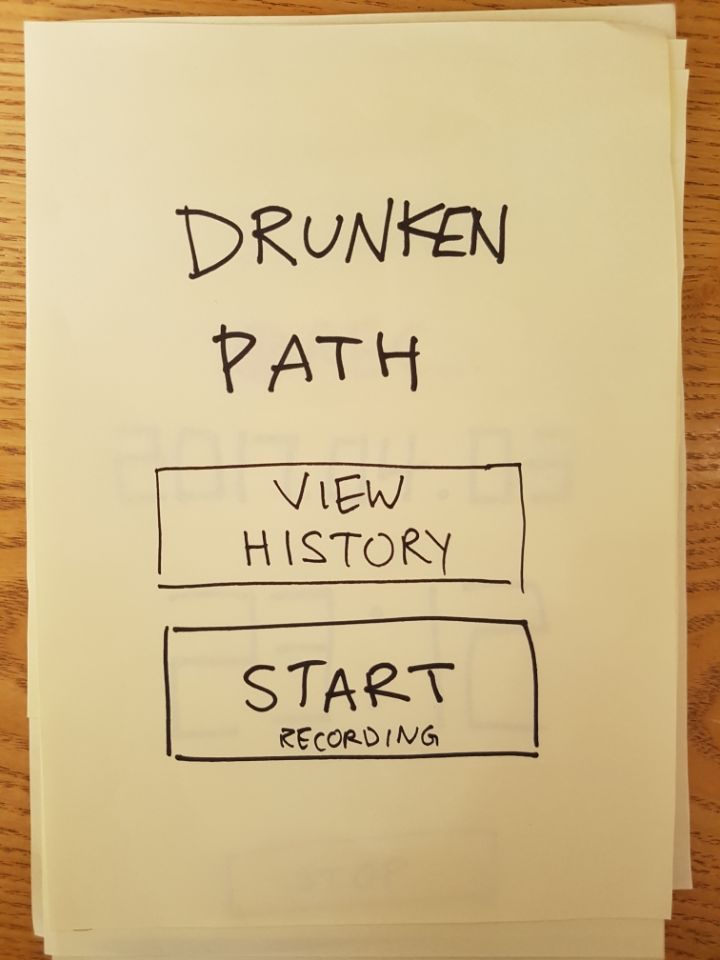 DRUNKEN
PATH
VIEW
HISTORY
START
RECORDING